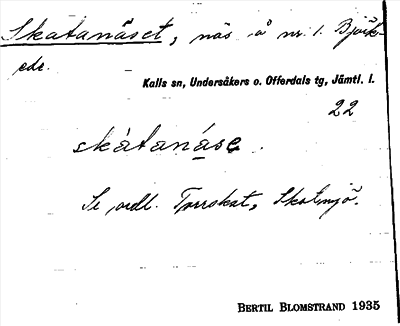 Skatanäset, näs å nr. 1. Björk-
ede.
Kalls sn, Undersåkers o. Offerdals tg, Jämtl. l.
22
skàtanáse.
Se ordl. Torrskat, Skatmjö.
BERTIL BLOMSTRAND 1935